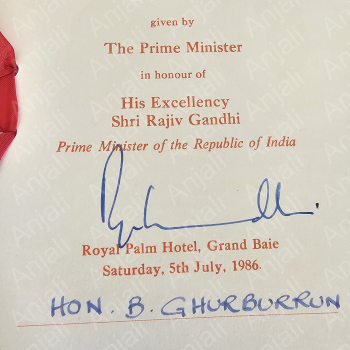 given by
The Prime Minister
in honour of
His Excellency
Shri Rajiv Gandhi
Prime Minister of the Republic of India
Royal Palm Hotel, Grand Baie
Saturday, 5th July, 1986.
HON. B. GHURBURRUN